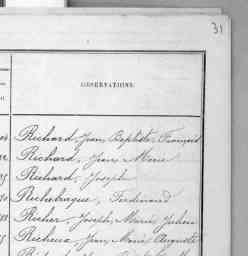 31
OBSERVATIONS.
Richard, Jean, Baptiste, François
Richard, Jean, Marie
Richard, Joseph
Richebraque, Ferdinand
Richer, Joseph, Marie, Julien
Jean, Marie, Auguste